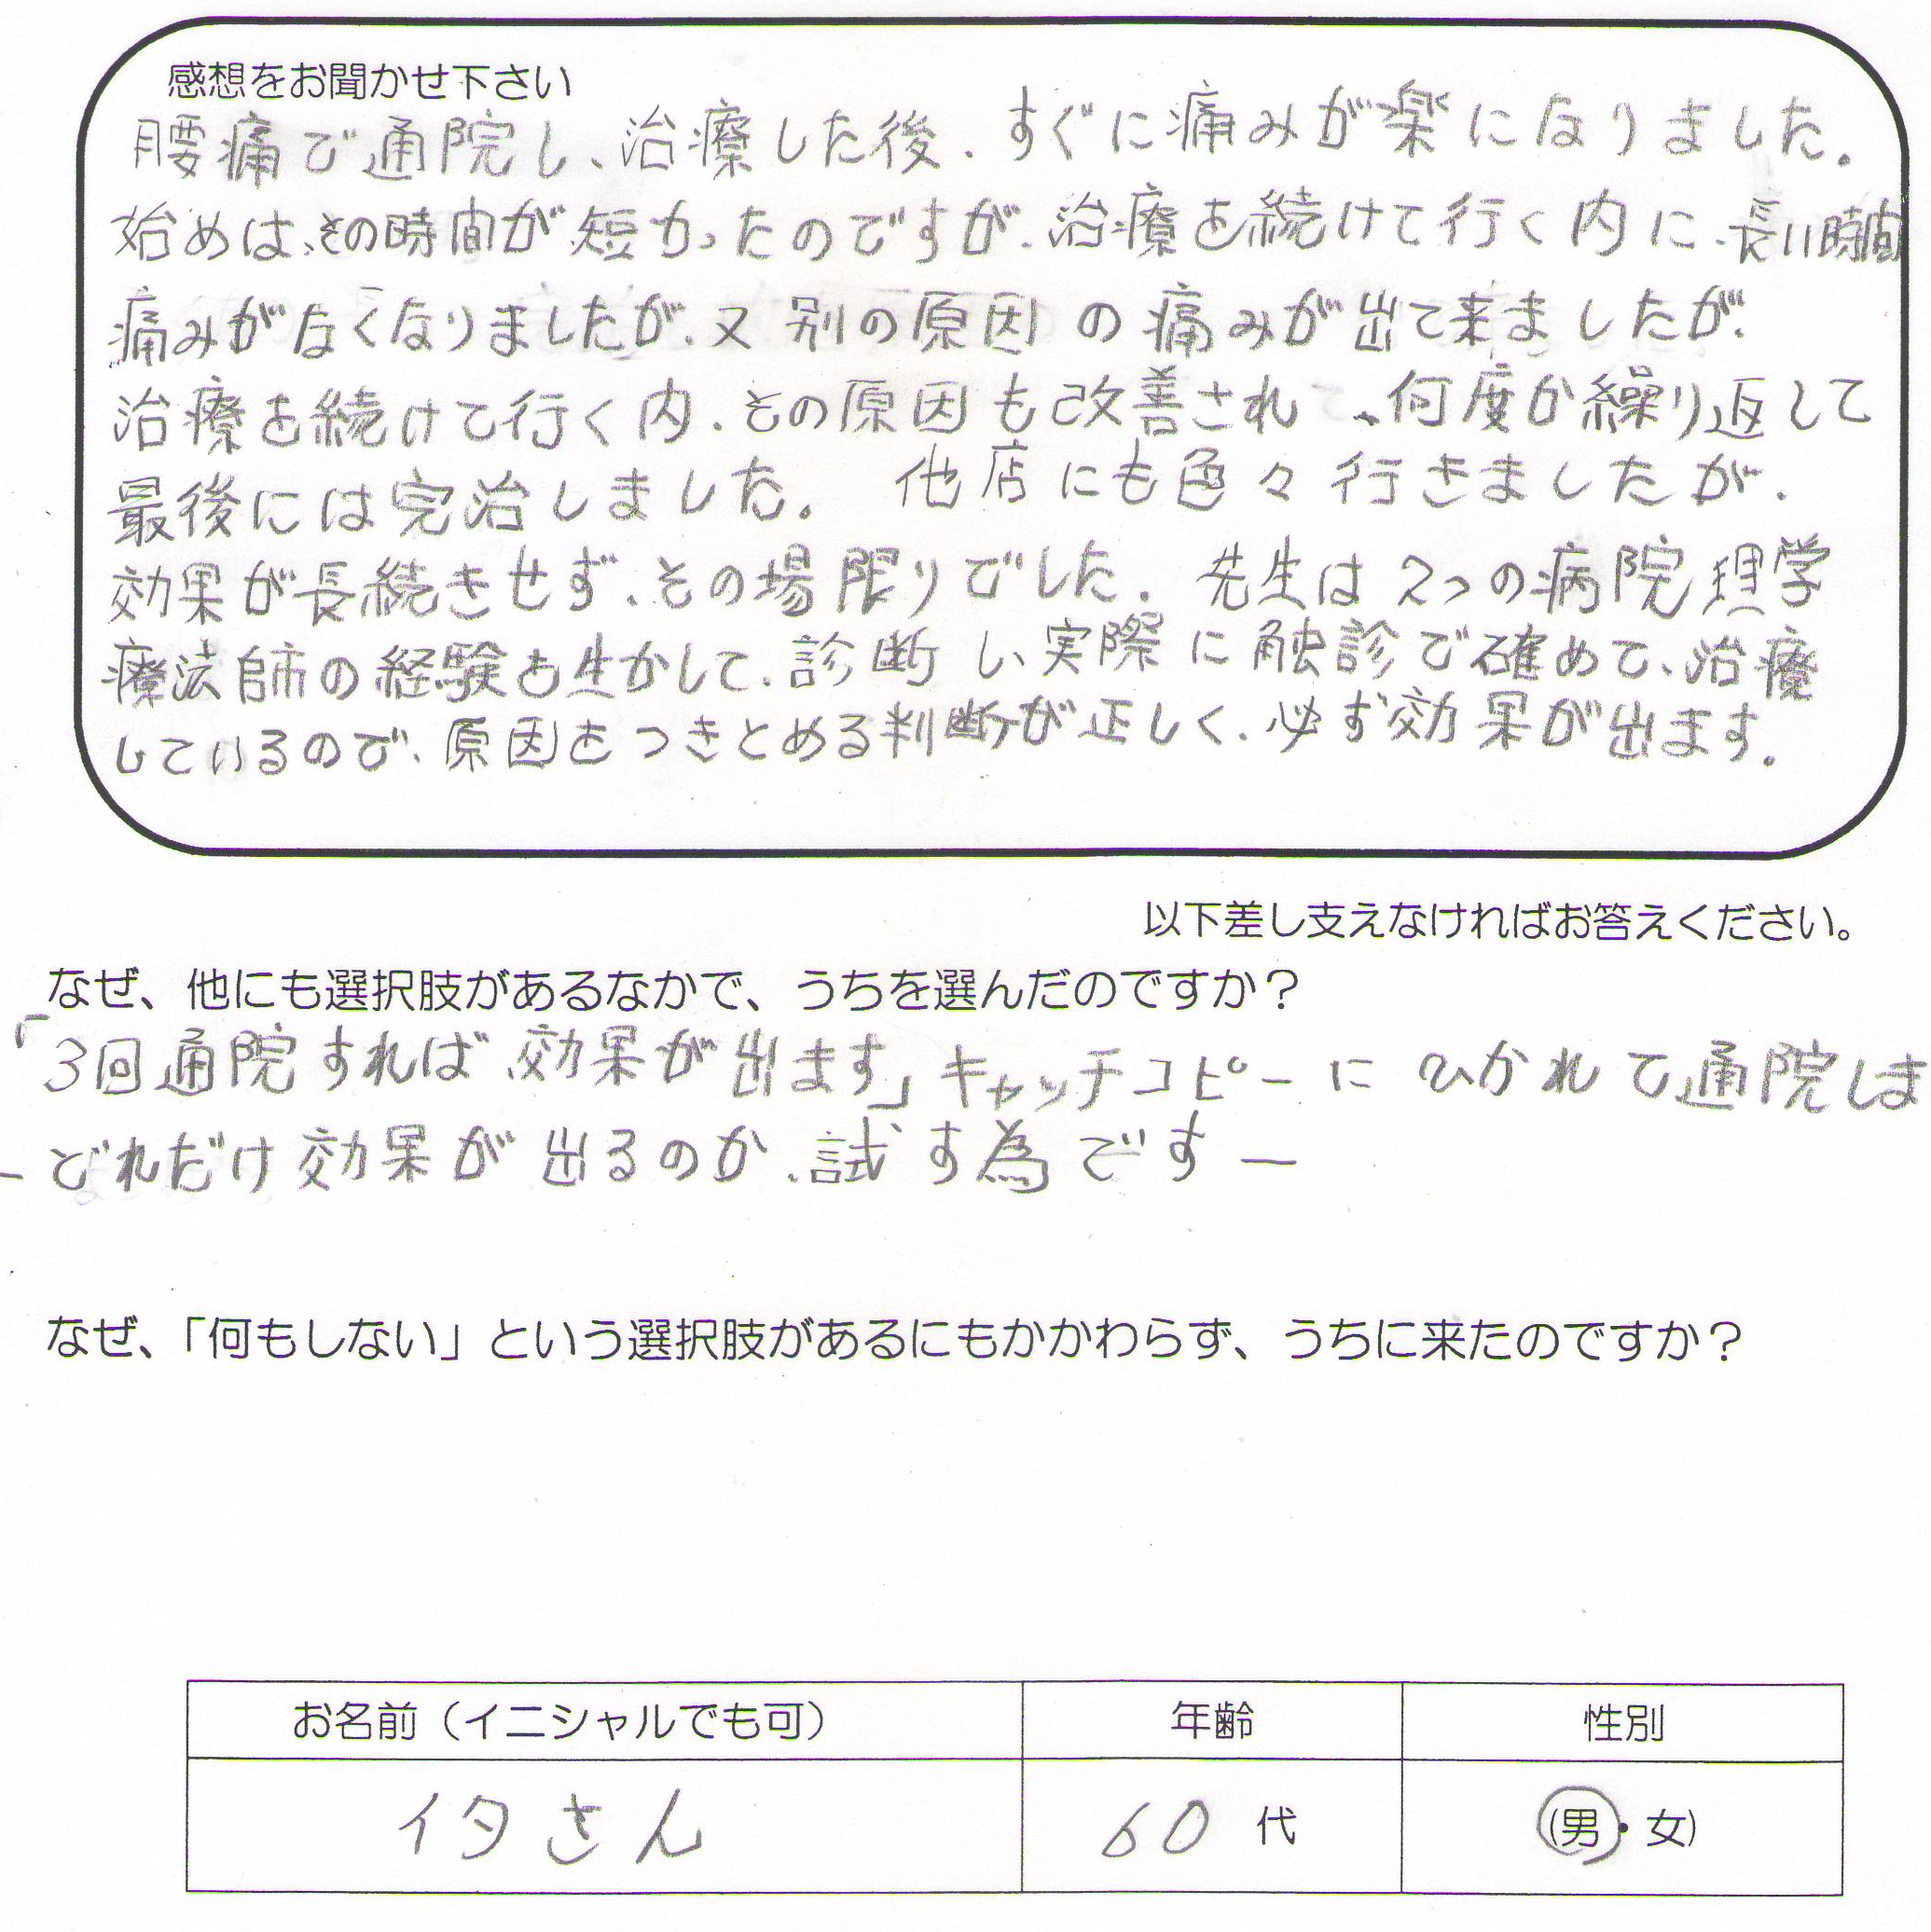 感想をお聞かせ下さい
腰痛で通院し、治療した後、すぐに痛みが楽になりました。
始めは、その時間が短かったのですが、治療を続けて行く内に、長い時間
痛みがなくなりましたが、又別の原因の痛みが出て来ましたが、
治療を続けて行く内、その原因も改善され、何度か繰り返して
最後には完治しました。 他店にも色々行きましたが、
効果が長続きせず、その場限りでした。先生は2つの病院理学
療法師の経験も生かして、診断し、実際に触診で確めて、治療
しているので、原因をつきとめる判断が正しく、必ず効果が出ます。
以下差し支えなければお答えください。
なぜ、他にも選択肢があるなかで、うちを選んだのですか？
「3回通院すれば効果が出ます」キャッチコピーにひかれて通院しま
-どれだけ効果が出るのか、試す為です-
なぜ、「何もしない」という選択肢があるにもかかわらず、うちに来たのですか？
お名前（イニシャルでも可） 年齢 性別
イタさん 60代 (男・女)